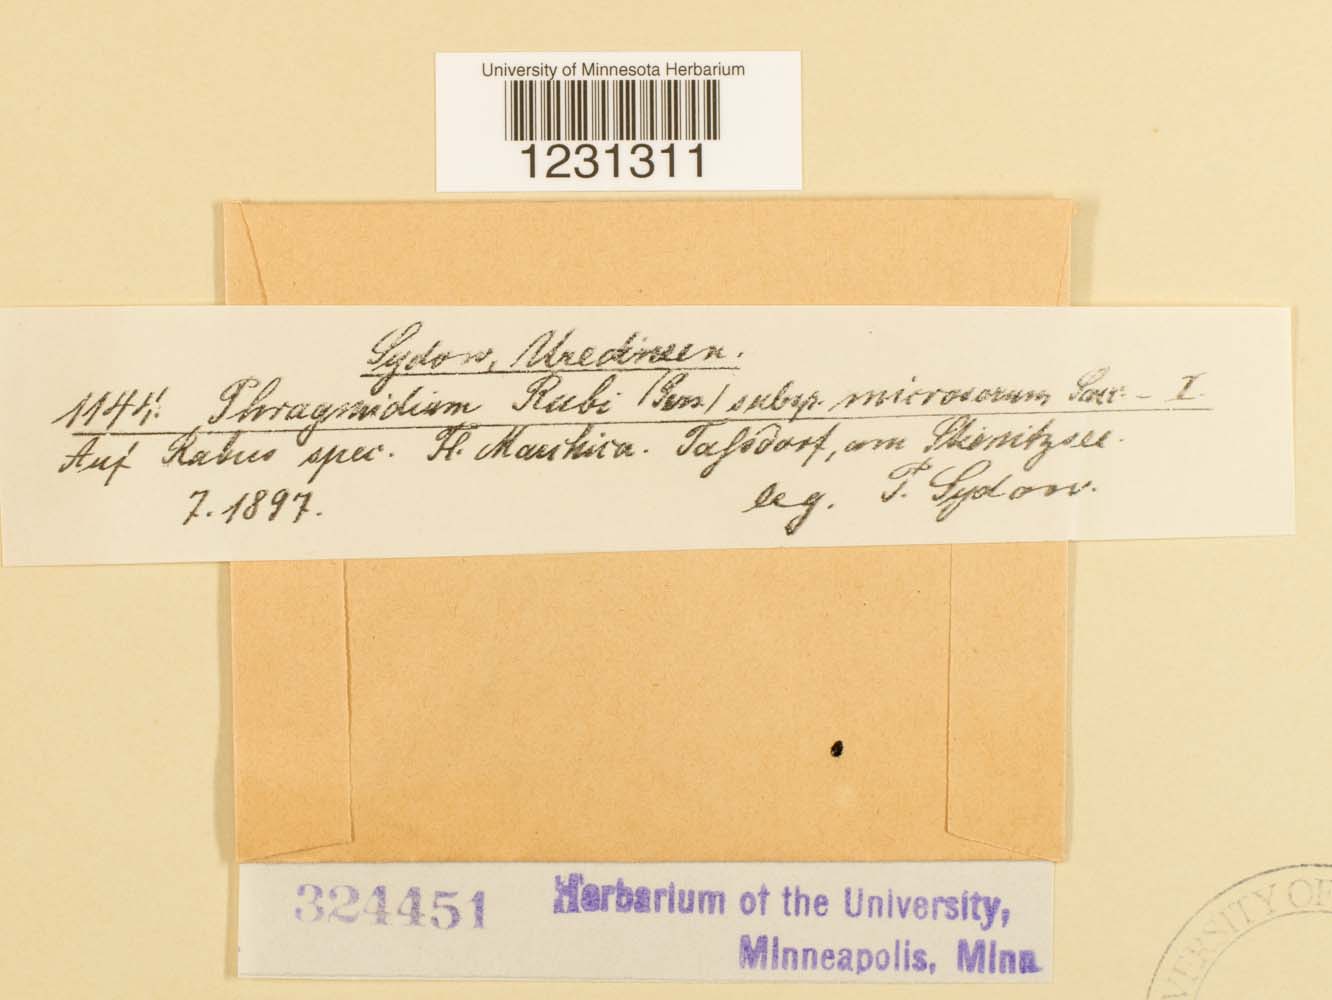 University of Minnesota Herbarium
1231311
Sydow, Uredineen.
Phragmidium Rubi (Pers.) subsp. microsorum Sacc. - I.
Auf Rubus spec. Fl. Marchica. Tassdorf, am Stienitzsee.
7. 1897.
leg. P. Sydow.
324451
Herbarium of the University,
Minneapolis, Minn
VERSITY OF